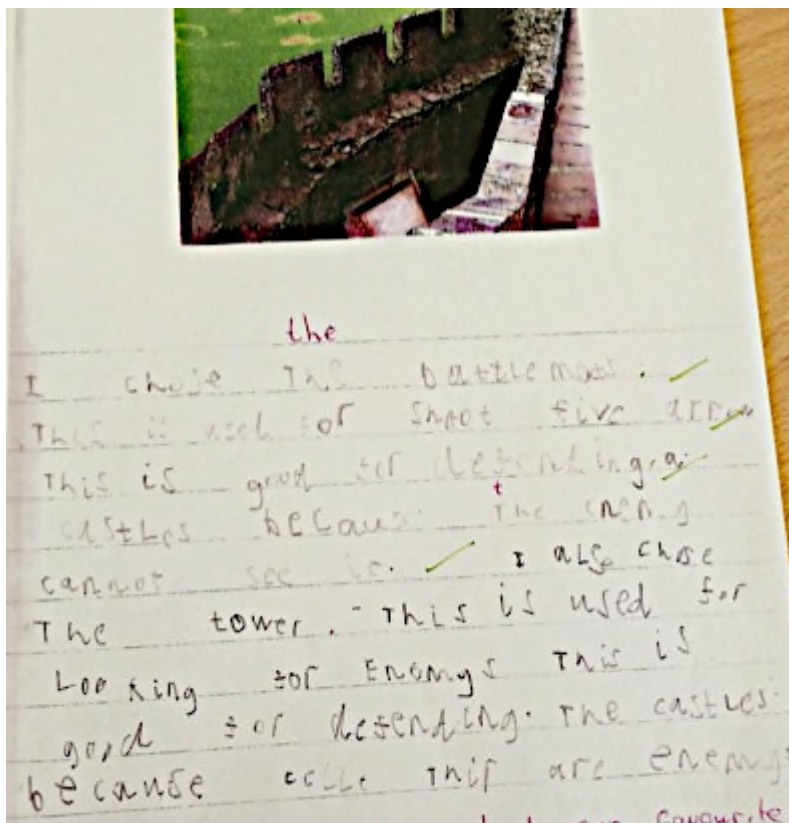 the
I chose The battlemats.
This is used for shoot five arrow
This is good for defending. a
castles because t The enemy
cannot see
I also chose
The tower. This is used for
Looking for Enemys This is
good for defending. The castles.
because this are enemy
favourite